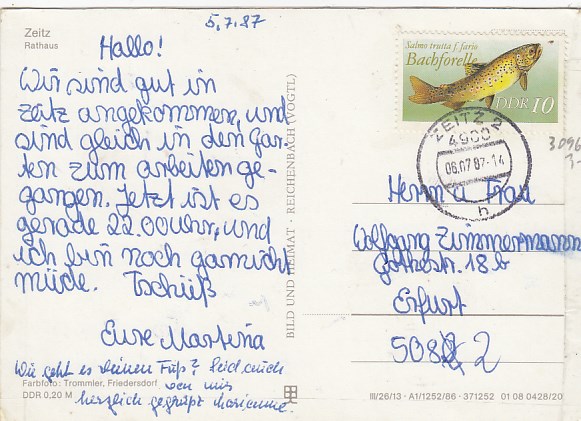 5.7.87
Zeitz
Rathaus
Hallo!
Wir sind gut in
Zeitz angekommen, und
sind gleich in den Gar-
ten zum arbeiten ge-
gangen. Jetzt ist es
gerade 22.00 Uhr, und
ich bin noch garnicht
müde. Tschüß
Eure Martina
Wie geht es Deinem Fuß? Seid auch
von mir
herzlich gegrüßt Marianne.
Farbfoto: Trommler, Friedersdorf
DDR 0,20 M
BILD UND HEIMAT · REICHENBACH (VOGTL)
Salmo trutta f. fario
Bachforelle
DDR 10
ZEITZ 2
4900
06.07.87-14
h
3096
Herrn u. Frau
Wolfgang Zimmermann
Göthestr. 18b
Erfurt
508 2
III/26/13 · A1/1252/86 · 371252 01 08 0428/20